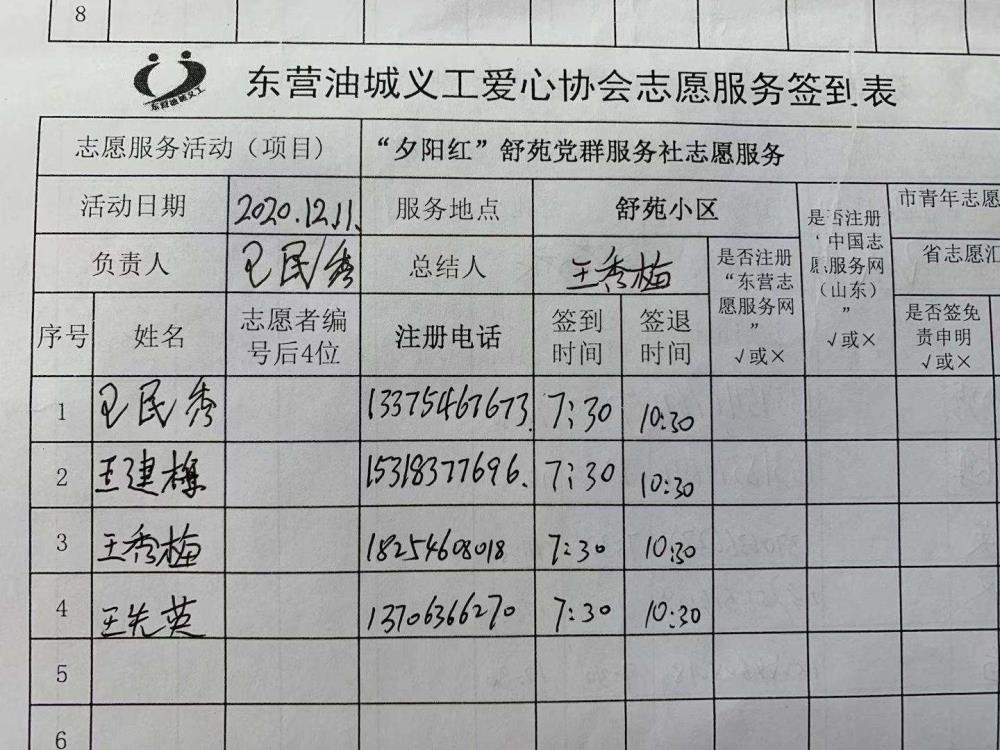 8
东营油城义工
东营油城义工爱心协会志愿服务签到表
志愿服务活动（项目） “夕阳红”舒苑党群服务社志愿服务
活动日期 2020.12.11. 服务地点 舒苑小区
负责人 王民秀 总结人 王秀梅
是否注册
“东营志
愿服务网
”
√或×
是否注册
“中国志
愿服务网
（山东）
”
√或×
市青年志愿
省志愿汇
是否签免
责申明
√或×
序号 姓名 志愿者编
号后4位
注册电话 签到
时间
签退
时间
1 王民秀 13375467673 7:30 10:30
2 王建梅 15318377696. 7:30 10:30
3 王秀梅 18254608018 7:30 10:30
4 王先英 13706366270 7:30 10:30
5
6